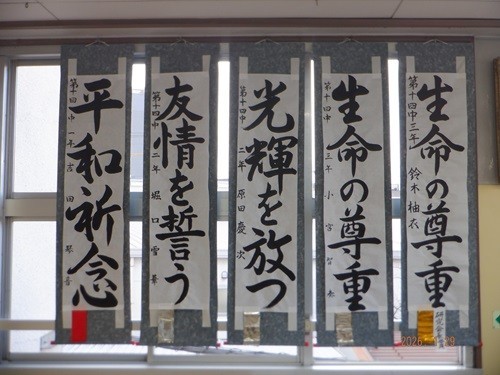 生命の尊重
第十四中三年 鈴木 柚衣
生命の尊重
第十四中 三年 小宮
光輝を放つ
第十四中 二年 原田慶次
友情を誓う
第十四中 二年 堀口雪華
平和祈念
第十四中 一年 吉田